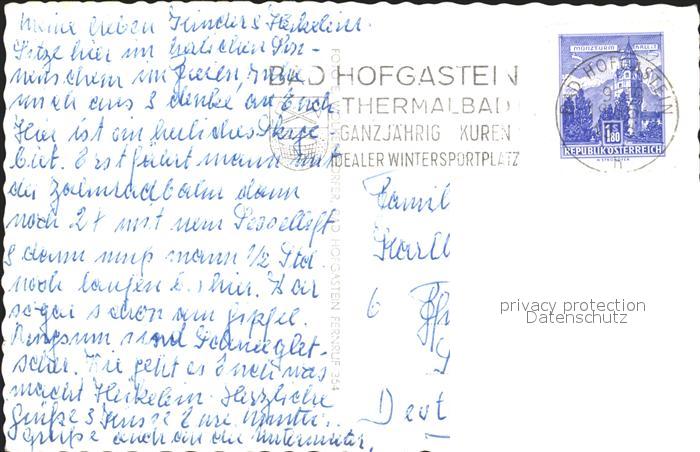 Meine lieben Kinder & Heikelein.
Sitze hier im herrlichen Son-
nenschein im Freien, ruhe
mich aus & denke an Euch
Hier ist ein herrliches Skige-
biet. Erst fährt mann mit
der Zahnradbahn dann
noch 2 x mit nem Sessellift
& dann muss mann 1/2 Std.
noch laufen bis hier. War
sogar schon am Gipfel.
Ringsum sind Schneeglet-
scher. Wie geht es Euch was
macht Heikelein. Herzliche
Grüße & Küsse Eure Mutti.
Grüße auch an die Untermieter.
BAD HOFGASTEIN
THERMALBAD
GANZJÄHRIG KUREN
IDEALER WINTERSPORTPLATZ
MÜNZTURM HALL i.T.
BAD HOFGASTEIN
S 1.80
REPUBLIK ÖSTERREICH
BAD HOFGASTEIN FERNRUF 354
Famil
Karl
6
Deut
privacy protection
Datenschutz